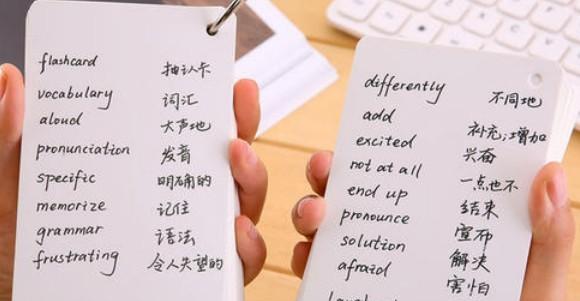 flashcard 抽认卡
vocabulary 词汇
aloud 大声地
pronunciation 发音
specific 明确的
memorize 记住
grammar 语法
frustrating 令人失望的
differently 不同地
add 补充;增加
excited 兴奋
not at all 一点也不
end up 结束
pronounce 宣布
solution 解决
afraid 害怕